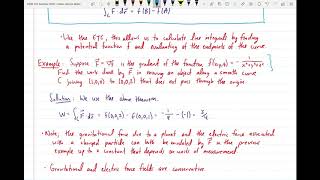 ∫_C F · dr = f(B) - f(A)
• Like the FTC, this allows us to calculate line integrals by finding
a potential function f and evaluating at the endpoints of the curve
Example: Suppose F = ∇f is the gradient of the function, f(x,y,z) = - 1/(x²+y²+z²)
Find the work done by F in moving an object along a smooth
curve C joining (1,0,0) to (0,0,2) that does not pass through the origin.
Solution: We use the above theorem.
W = ∫_C F · dr = f(0,0,2) - f(1,0,0) = - 1/4 - (-1) = 3/4
• Note, the gravitational force due to a planet and the electric force associated
with a charged particle can both be modeled by F in the previous
example up to a constant that depends on units of measurement.
• Gravitational and electric force fields are conservative.